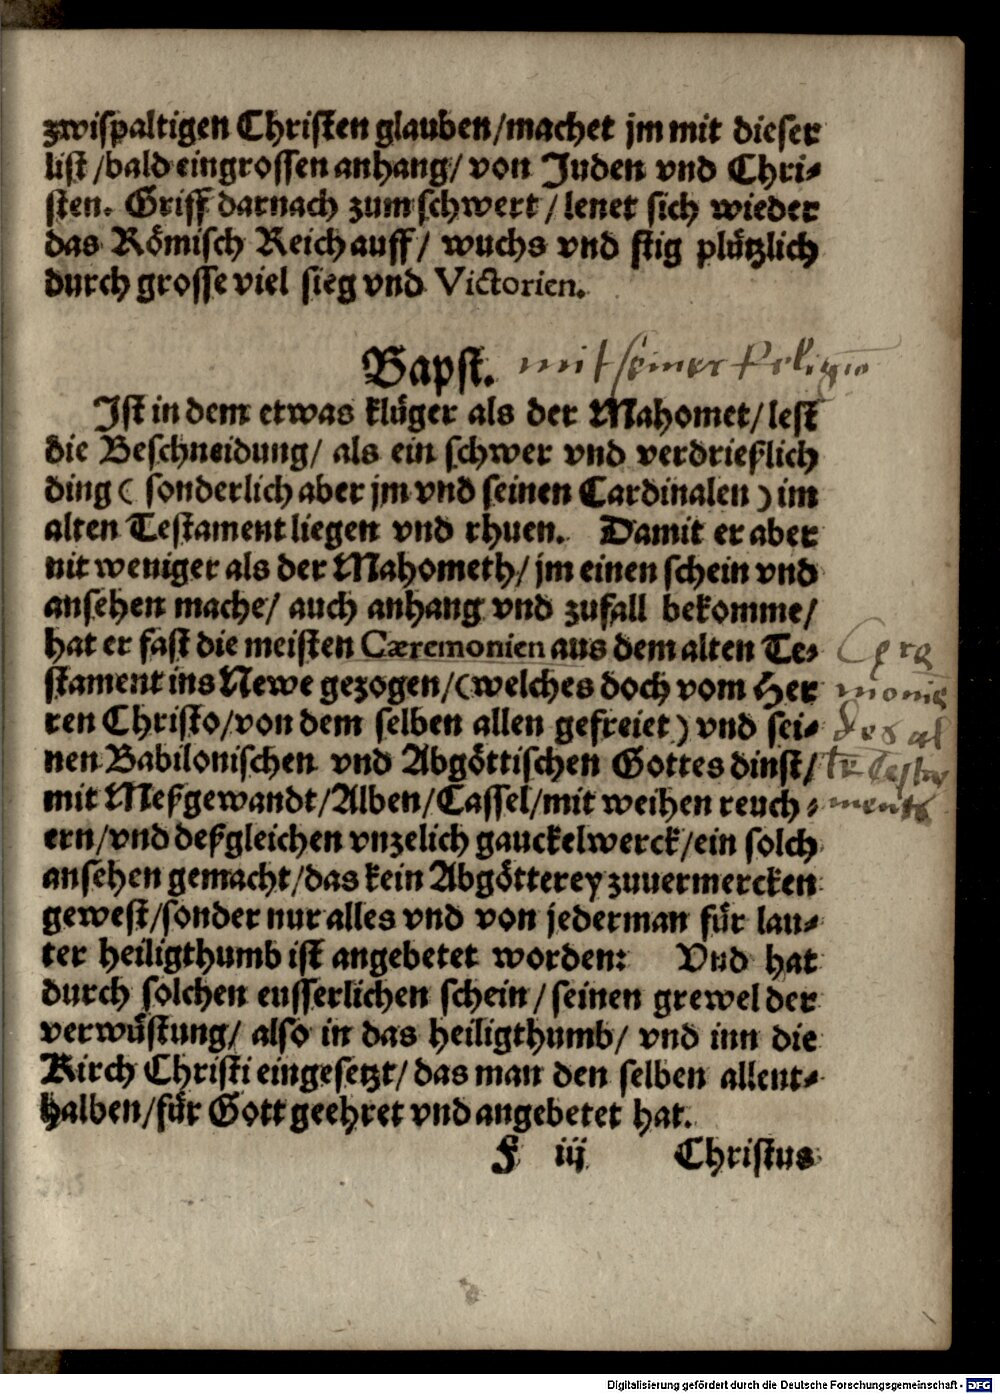 zwispaltigen Christen glauben/machet jm mit dieser
list/bald eingrossen anhang/ von Juden vnd Chri-
sten. Griff darnach zum schwert/lenet sich wieder
das Römisch Reich auff/ wuchs vnd stig plützlich
durch grosse viel sieg vnd Victorien.
Bapst. mit seiner Religion
Ist in dem etwas klüger als der Mahomet/lest
die Beschneidung/ als ein schwer vnd verdrießlich
ding ( sonderlich aber jm vnd seinen Cardinalen ) im
alten Testament liegen vnd rhuen. Damit er aber
nit weniger als der Mahometh/jm einen schein vnd
ansehen mache/ auch anhang vnd zufall bekomme/
hat er fast die meisten Cæremonien aus dem alten Te-
stament ins Newe gezogen/(welches doch vom Her
ren Christo/von dem selben allen gefreiet) vnd sei-
nen Babilonischen vnd Abgöttischen Gottes dinst/
mit Meßgewandt/Alben/Cassel/mit weihen reuch-
ern/vnd deßgleichen vnzelich gauckelwerck/ein solch
ansehen gemacht/das kein Abgötterey zuuermercken
gewest/sonder nur alles vnd von jederman für lau-
ter heiligthumb ist angebetet worden: Vnd hat
durch solchen eusserlichen schein/seinen grewel der
verwüstung/ also in das heiligthumb/ vnd inn die
Kirch Christi eingesetzt/das man den selben allent-
halben/für Gott geehret vnd angebetet hat.
F iij Christus
Cęre
monie
des al
te Testa
ments
Digitalisierung gefördert durch die Deutsche Forschungsgemeinschaft - DFG